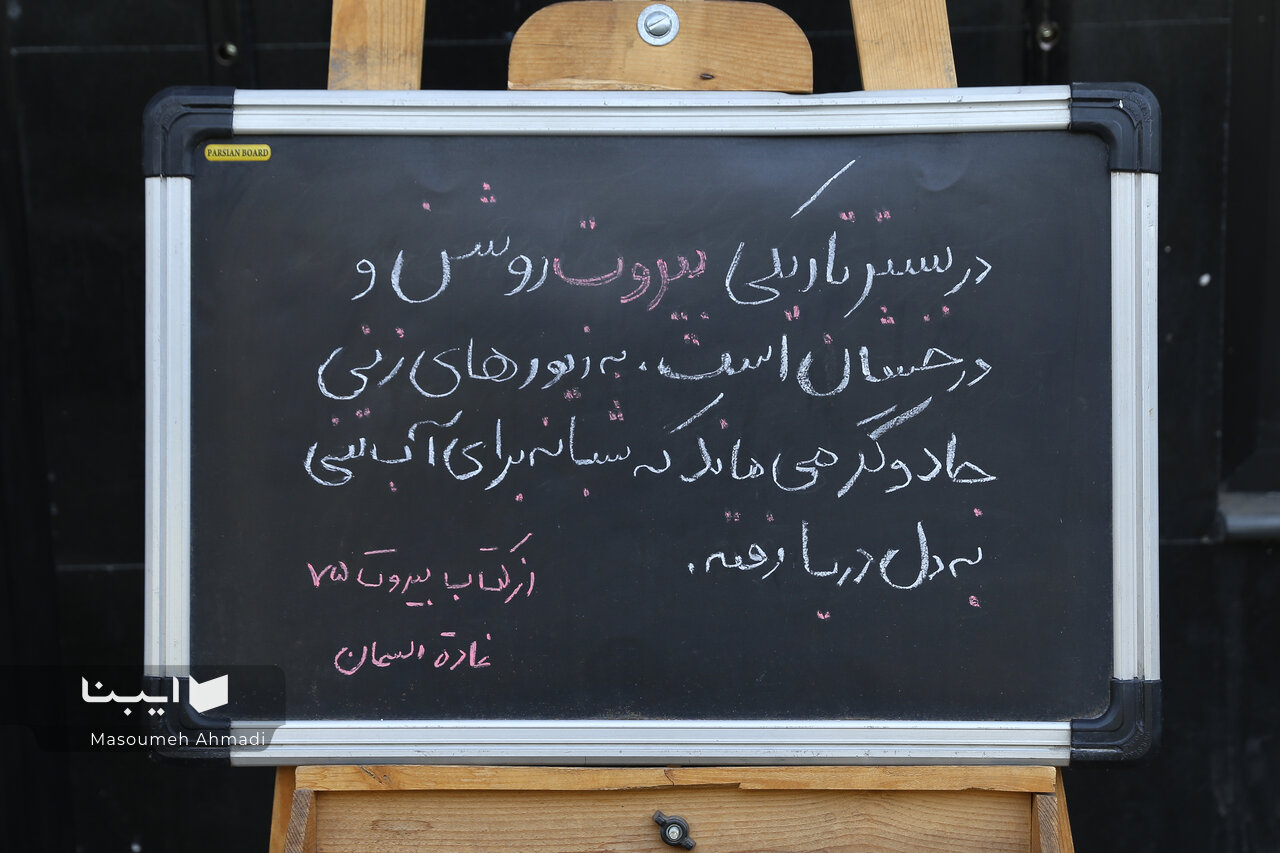 PARSIAN BOARD
در بستر تاریکی بیروت روشن و
درخشان است، به زیورهای زنی
جادوگر می ماند که شبانه برای آب تنی
به دل دریا رفته.
از کتاب بیروت ۷۵
غادة السمان
ایبنا
Masoumeh Ahmadi